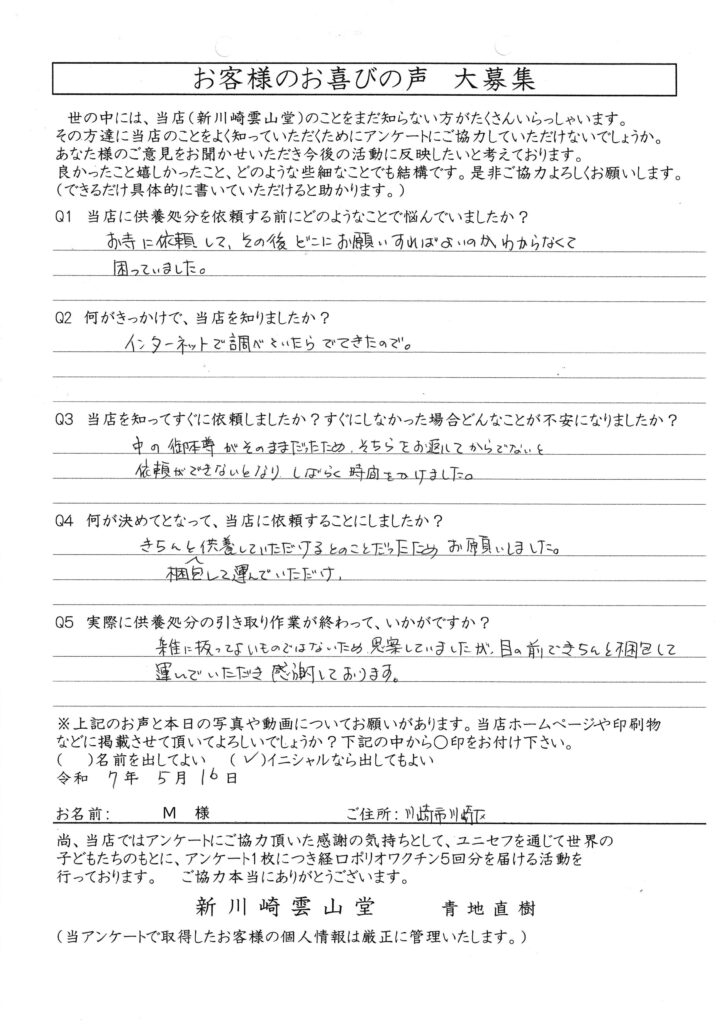 お客様のお喜びの声　大募集
世の中には、当店(新川崎雲山堂)のことをまだ知らない方がたくさんいらっしゃいます。
その方達に当店のことをよく知っていただくためにアンケートにご協力していただけないでしょうか。
あなた様のご意見をお聞かせいただき今後の活動に反映したいと考えております。
良かったこと嬉しかったこと、どのような些細なことでも結構です。是非ご協力よろしくお願いします。
(できるだけ具体的に書いていただけると助かります。)
Q1 当店に供養処分を依頼する前にどのようなことで悩んでいましたか?
お寺に依頼して、その後どこにお願いすればよいのか、わからなくて
困っていました。
Q2 何がきっかけで、当店を知りましたか?
インターネットで調べていたらでてきたので。
Q3 当店を知ってすぐに依頼しましたか?すぐにしなかった場合どんなことが不安になりましたか?
中の御本尊がそのままだったため、そちらをお返してからでないと
依頼ができないとなり、しばらく時間をかけました。
Q4 何が決めてとなって、当店に依頼することにしましたか?
きちんと供養していただけるとのことだったためお願いしました。
梱包して運んでいただけ、
Q5 実際に供養処分の引き取り作業が終わって、いかがですか?
雑に扱ってよいものではないため、思案していましたが、目の前できちんと梱包して
運んでいただき感謝しております。
※上記のお声と本日の写真や動画についてお願いがあります。当店ホームページや印刷物
などに掲載させて頂いてよろしいでしょうか?下記の中から○印をお付け下さい。
(　)名前を出してよい　(✓)イニシャルなら出してもよい
令和 7年 5月 16日
お名前: M 様　ご住所: 川崎市川崎区
尚、当店ではアンケートにご協力頂いた感謝の気持ちとして、ユニセフを通じて世界の
子どもたちのもとに、アンケート1枚につき経口ポリオワクチン5回分を届ける活動を
行っております。　ご協力本当にありがとうございます。
新川崎雲山堂　青地直樹
(当アンケートで取得したお客様の個人情報は厳正に管理いたします。)